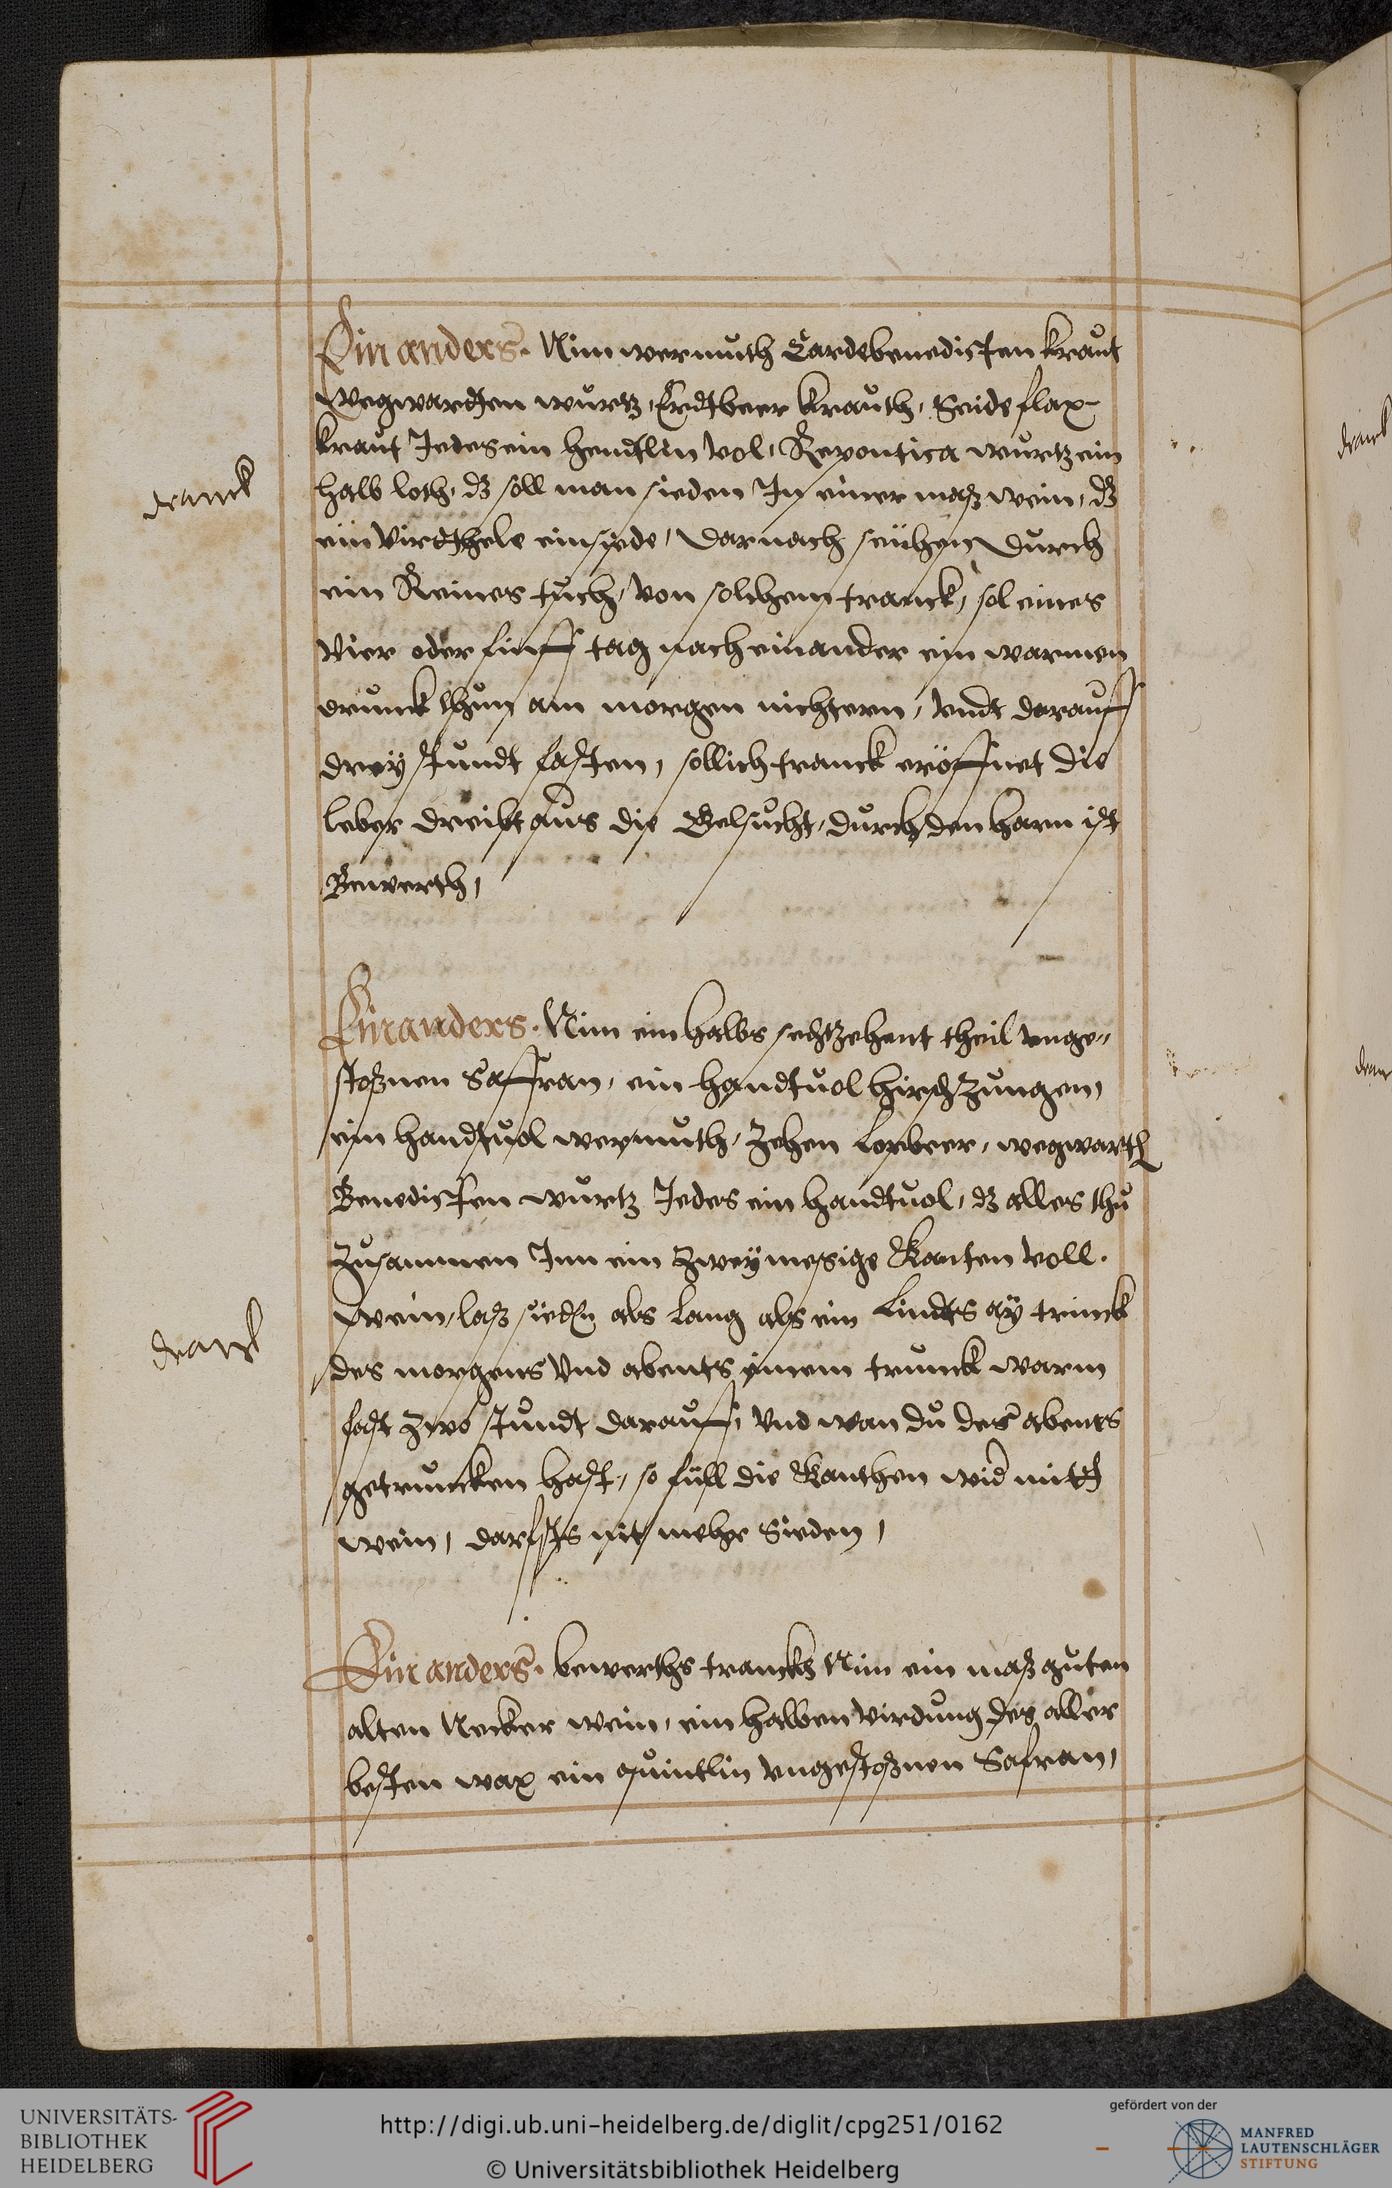 Ein anders. Nim wermuth Cardebenedicten kraut
wegwardten wurtz, Erdtbeer krauth, Seide flax
kraut Jedes ein hendtlin vol, Repontica wurtz ein
halb loth, dz soll man sieden In einer masz wein, dz
ein virdthele einsiede, darnach seühen durch
ein Reines tuch, von solchem tranck, sol eines
vier oder finff tag nach einander ein warmen
drunck thun am morgen nichtern, vndt darauff
drey stundt fasten, sollich tranck eröffnet die
leber dreibt aus die Gelsucht, durch den harn ist
Bewerth,
dranck
Ein anders. Nim ein halbs sechtzehent theil vnge-
stoßnen Saffran, ein handtuol hirschzungen,
ein handtuol wermuth, zehen Lorbeer, wegwarth
Benedicten wurtz Jedes ein handtuol, dz alles thu
zusammen Inn ein zweymesige Kanten voll
wein, lasz sieden als lang als ein Lindts ay trinck
des morgens vnd abents einem trunck warm
fast zwo stundt darauff, vnd wan du des abents
getruncken hast, so füll die Kanthen wider mitt
wein, darffts nit mehr Sieden,
dranck
Ein anders. bewerths tranckh Nim ein masz guten
alten Necker wein, ein halben virdung des aller
besten wax ein quintlin vngestoßnen Safran,
dranck
UNIVERSITÄTS-
BIBLIOTHEK
HEIDELBERG
http://digi.ub.uni-heidelberg.de/diglit/cpg251/0162
© Universitätsbibliothek Heidelberg
gefördert von der
MANFRED
LAUTENSCHLÄGER
STIFTUNG